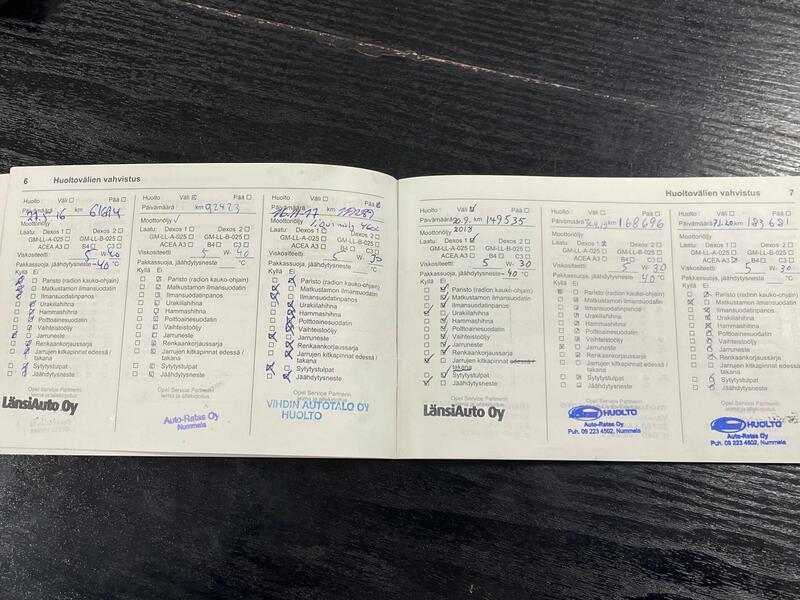 6 Huoltovälien vahvistus
Huolto : Väli ☐ Pää ☐
Päivämäärä km 61614
Moottoriöljy
Laatu: Dexos 1 ☐ Dexos 2 ☐
GM-LL-A-025 ☐ GM-LL-B-025 ☐
ACEA A3 ☐ B4 ☐ C3 ☐
Viskositeetti: 5 W- 40
Pakkassuoja, jäähdytysneste -40 °C
Kyllä Ei
Paristo (radion kauko-ohjain)
Matkustamon ilmansuodatin
Ilmansuodatinpanos
Urakiilahihna
Hammashihna
Polttoainesuodatin
Vaihteistoöljy
Jarruneste
Renkaankorjaussarja
Jarrujen kitkapinnat edessä /
takana
Sytytystulpat
Jäähdytysneste
Opel Service Partnerin
leima ja allekirjoitus
LänsiAuto Oy
Huolto : Väli Pää ☐
Päivämäärä : km 92423
Moottoriöljy
Laatu: Dexos 1 ☐ Dexos 2 ☐
GM-LL-A-025 ☐ GM-LL-B-025 ☐
ACEA A3 ☐ B4 C3 ☐
Viskositeetti: 5 W- 40
Pakkassuoja, jäähdytysneste °C
Kyllä Ei
Paristo (radion kauko-ohjain)
Matkustamon ilmansuodatin
Ilmansuodatinpanos
Urakiilahihna
Hammashihna
Polttoainesuodatin
Vaihteistoöljy
Jarruneste
Renkaankorjaussarja
Jarrujen kitkapinnat edessä /
takana
Sytytystulpat
Jäähdytysneste
Opel Service Partnerin
leima ja allekirjoitus
Auto-Ratas Oy
Nummela
Huolto : Väli ☐ Pää
Päivämäärä km
Moottoriöljy
Laatu: Dexos 1 ☐ Dexos 2 ☐
GM-LL-A-025 ☐ GM-LL-B-025 ☐
ACEA A3 ☐ B4 ☐ C3 ☐
Viskositeetti: 5 W- 30
Pakkassuoja, jäähdytysneste °C
Kyllä Ei
Paristo (radion kauko-ohjain)
Matkustamon ilmansuodatin
Ilmansuodatinpanos
Urakiilahihna
Hammashihna
Polttoainesuodatin
Vaihteistoöljy
Jarruneste
Renkaankorjaussarja
Jarrujen kitkapinnat edessä /
takana
Sytytystulpat
Jäähdytysneste
Opel Service Partnerin
leima ja allekirjoitus
VIHDIN AUTOTALO OY
HUOLTO
Huoltovälien vahvistus 7
Huolto : Väli Pää ☐
Päivämäärä 20.9. km 149535
2018
Moottoriöljy
Laatu: Dexos 1 Dexos 2 ☐
GM-LL-A-025 ☐ GM-LL-B-025 ☐
ACEA A3 ☐ B4 ☐ C3 ☐
Viskositeetti: 5 W- 30
Pakkassuoja, jäähdytysneste -40 °C
Kyllä Ei
Paristo (radion kauko-ohjain)
Matkustamon ilmansuodatin
Ilmansuodatinpanos
Urakiilahihna
Hammashihna
Polttoainesuodatin
Vaihteistoöljy
Jarruneste
Renkaankorjaussarja
Jarrujen kitkapinnat edessä /
takana
Sytytystulpat
Jäähdytysneste
Opel Service Partnerin
leima ja allekirjoitus
LänsiAuto Oy
Huolto : Väli ☐ Pää ☐
Päivämäärä km 168696
Moottoriöljy
Laatu: Dexos 1 Dexos 2 ☐
GM-LL-A-025 ☐ GM-LL-B-025 ☐
ACEA A3 ☐ B4 ☐ C3 ☐
Viskositeetti: 5 W- 30
Pakkassuoja, jäähdytysneste 40 °C
Kyllä Ei
Paristo (radion kauko-ohjain)
Matkustamon ilmansuodatin
Ilmansuodatinpanos
Urakiilahihna
Hammashihna
Polttoainesuodatin
Vaihteistoöljy
Jarruneste
Renkaankorjaussarja
Jarrujen kitkapinnat edessä /
takana
Sytytystulpat
Jäähdytysneste
Opel Service Partnerin
leima ja allekirjoitus
HUOLTO
Auto-Ratas Oy
Puh. 09 223 4502, Nummela
Huolto : Väli ☐ Pää ☐
Päivämäärä km 183681
Moottoriöljy
Laatu: Dexos 1 ☐ Dexos 2 ☐
GM-LL-A-025 ☐ GM-LL-B-025 ☐
ACEA A3 B4 ☐ C3
Viskositeetti: 5 W- 30
Pakkassuoja, jäähdytysneste °C
Kyllä Ei
Paristo (radion kauko-ohjain)
Matkustamon ilmansuodatin
Ilmansuodatinpanos
Urakiilahihna
Hammashihna
Polttoainesuodatin
Vaihteistoöljy
Jarruneste
Renkaankorjaussarja
Jarrujen kitkapinnat edessä /
takana
Sytytystulpat
Jäähdytysneste
Opel Service Partnerin
leima ja allekirjoitus
HUOLTO
Auto-Ratas Oy
Puh. 09 223 4502, Nummela